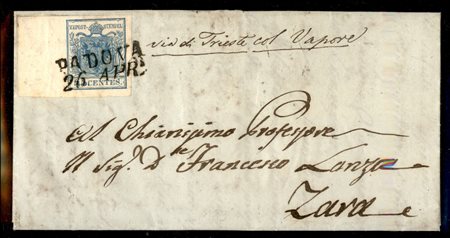 KKPOST-STEMPEL
CENTES.
PADOVA
26 APR.
via di Trieste col Vapore
Al Chiarissimo Professore
Il Sig.r D.re Francesco Lanza
Zara